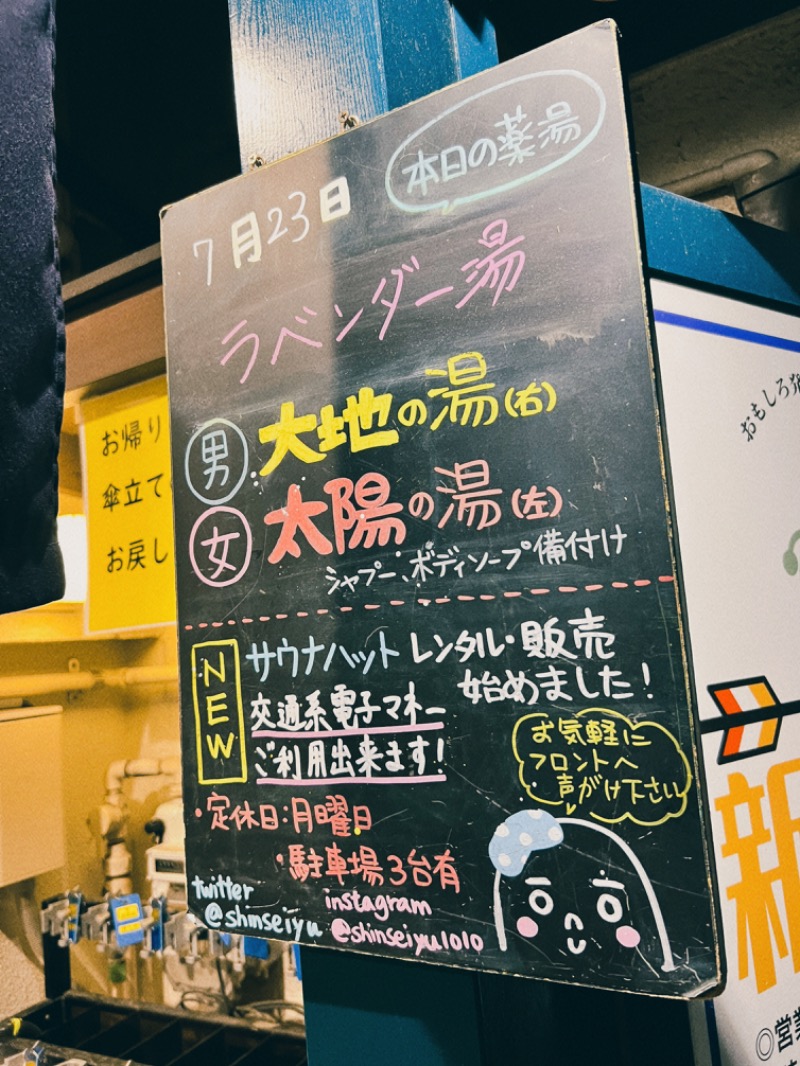 本日の薬湯
7月23日
ラベンダー湯
男 大地の湯(右)
女 太陽の湯(左)
シャプー、ボディソープ備付け
NEW
サウナハット レンタル・販売
始めました!
交通系電子マネー
ご利用出来ます!
お気軽に
フロントへ
声がけ下さい
・定休日:月曜日
・駐車場3台有
twitter
@shinseiyu
instagram
@shinseiyu1010
お帰り
傘立て
お戻し
おもしろ
新
◎営業